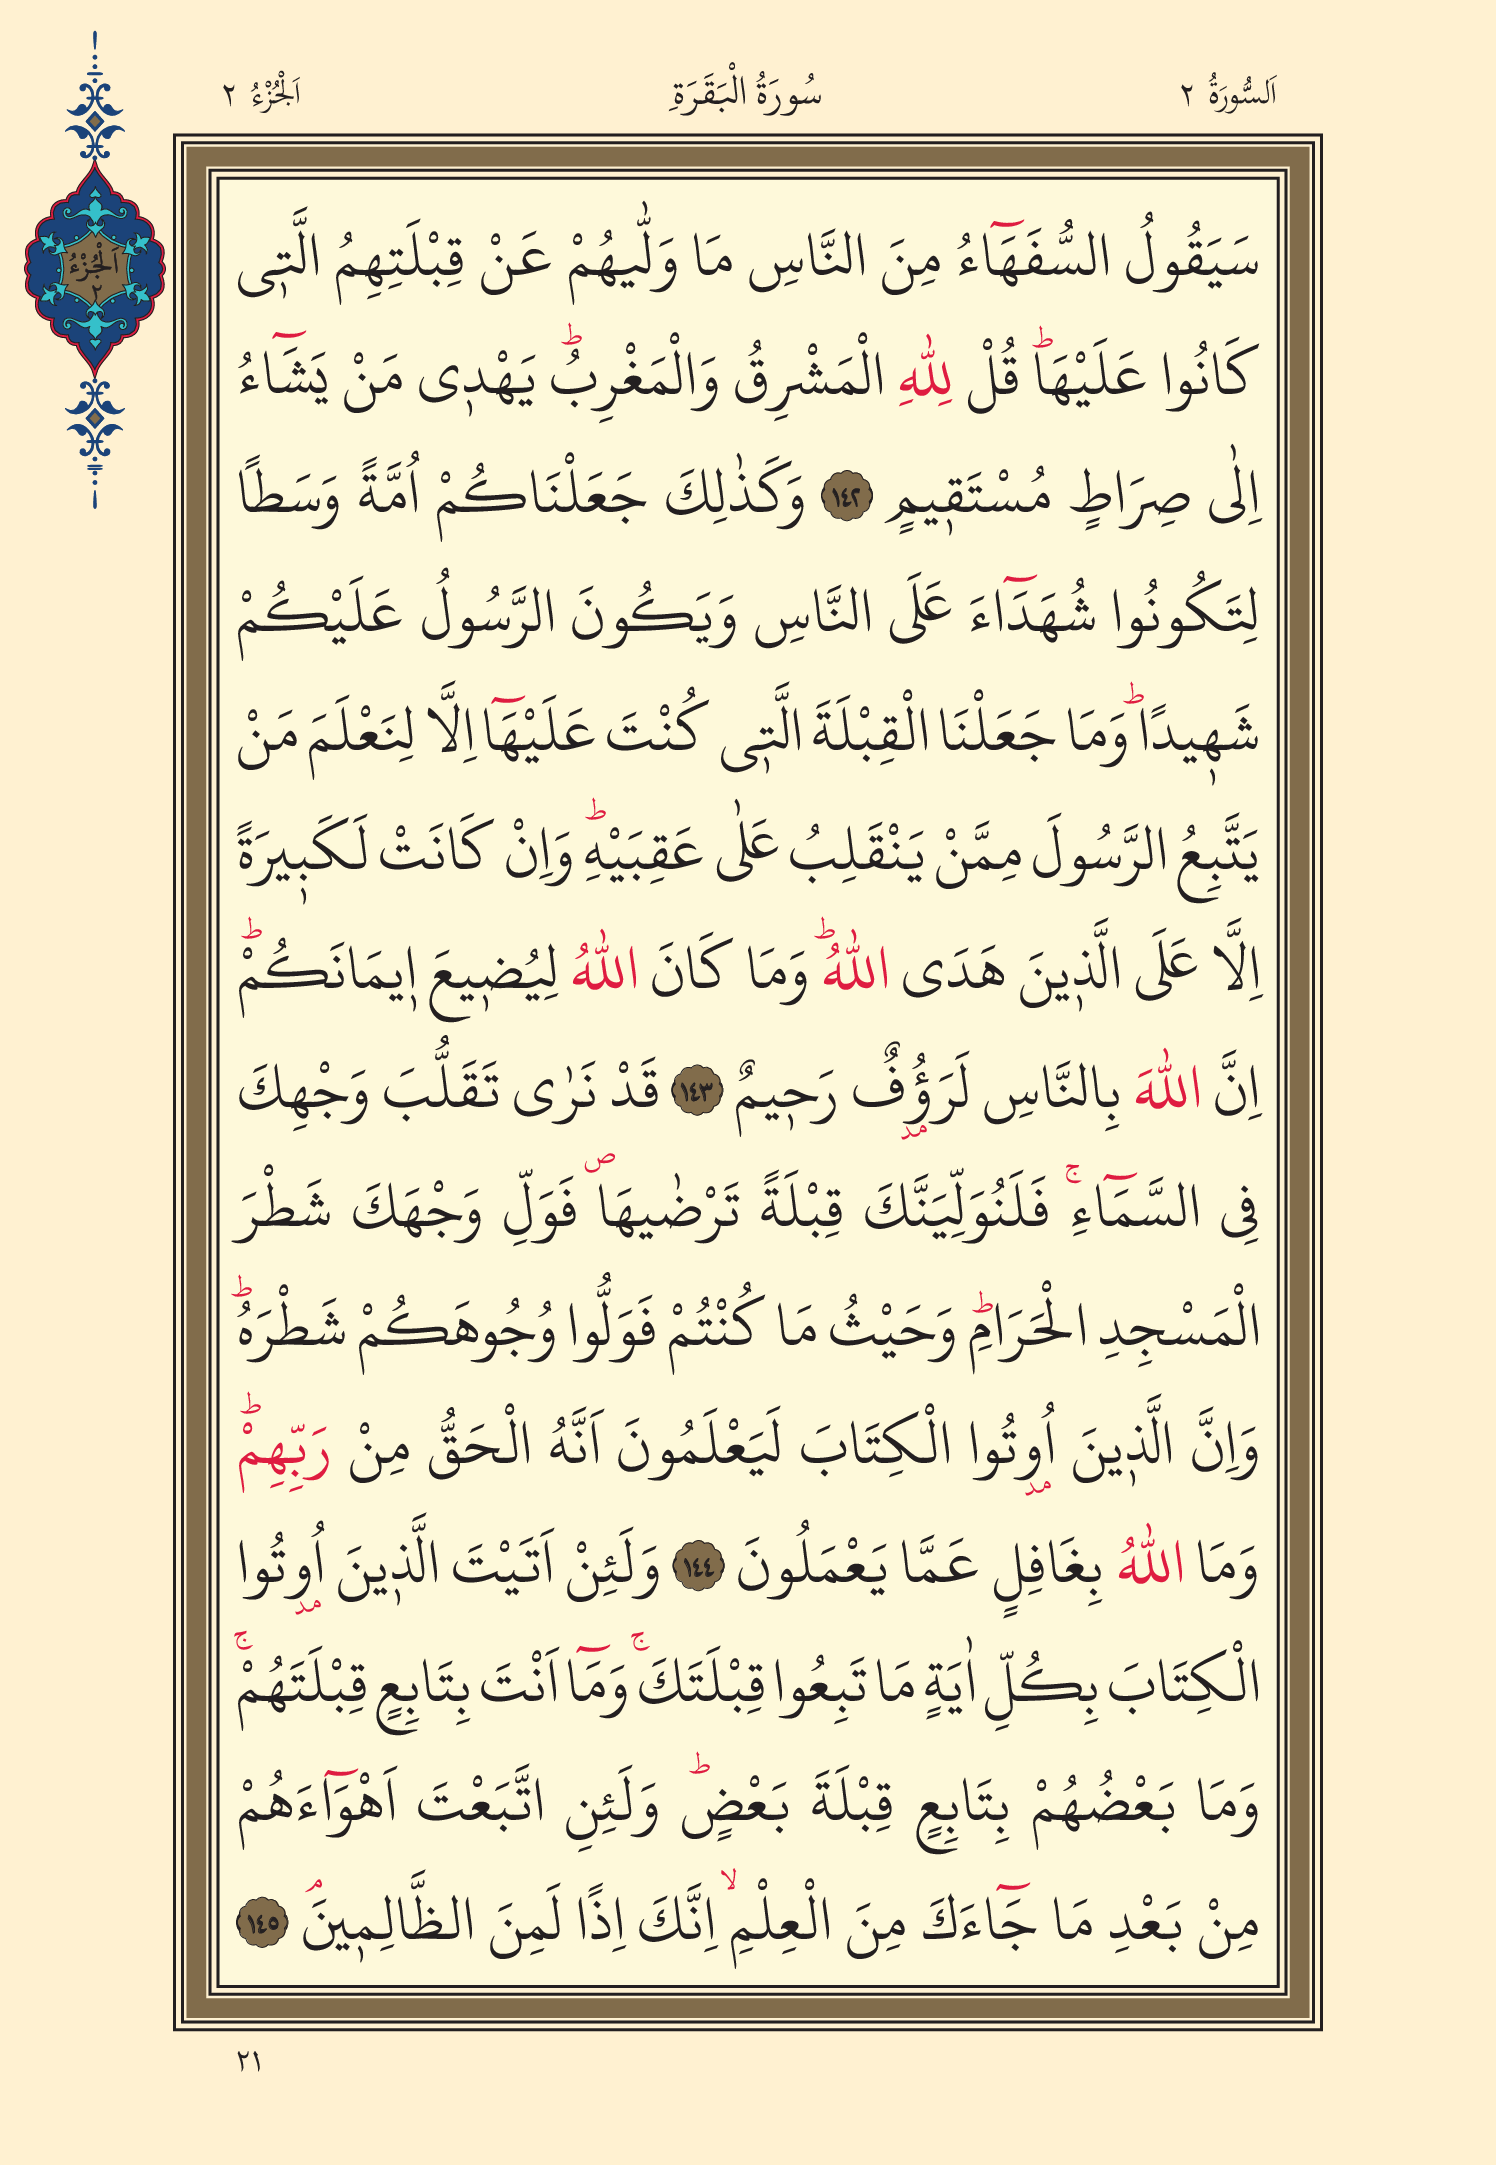 اَلسُّورَةُ ٢ سُورَةُ الْبَقَرَةِ اَلْجُزْءُ ٢
اَلْجُزْءُ
٢
سَيَقُولُ السُّفَهَٓاءُ مِنَ النَّاسِ مَا وَلّٰيهُمْ عَنْ قِبْلَتِهِمُ الَّتٖى
كَانُوا عَلَيْهَاؕ قُلْ لِلّٰهِ الْمَشْرِقُ وَالْمَغْرِبُؕ يَهْدٖى مَنْ يَشَٓاءُ
اِلٰى صِرَاطٍ مُسْتَقٖيمٍ ﴿١٤٢﴾ وَكَذٰلِكَ جَعَلْنَاكُمْ اُمَّةً وَسَطًا
لِتَكُونُوا شُهَدَٓاءَ عَلَى النَّاسِ وَيَكُونَ الرَّسُولُ عَلَيْكُمْ
شَهٖيدًاؕ وَمَا جَعَلْنَا الْقِبْلَةَ الَّتٖى كُنْتَ عَلَيْهَٓا اِلَّا لِنَعْلَمَ مَنْ
يَتَّبِعُ الرَّسُولَ مِمَّنْ يَنْقَلِبُ عَلٰى عَقِبَيْهِؕ وَاِنْ كَانَتْ لَكَبٖيرَةً
اِلَّا عَلَى الَّذٖينَ هَدَى اللّٰهُؕ وَمَا كَانَ اللّٰهُ لِيُضٖيعَ اٖيمَانَكُمْؕ
اِنَّ اللّٰهَ بِالنَّاسِ لَرَؤُفٌ رَحٖيمٌ ﴿١٤٣﴾ قَدْ نَرٰى تَقَلُّبَ وَجْهِكَ
مد
فِى السَّمَٓاءِۚ فَلَنُوَلِّيَنَّكَ قِبْلَةً تَرْضٰيهَاࣕ فَوَلِّ وَجْهَكَ شَطْرَ
الْمَسْجِدِ الْحَرَامِؕ وَحَيْثُ مَا كُنْتُمْ فَوَلُّوا وُجُوهَكُمْ شَطْرَهُؕ
وَاِنَّ الَّذٖينَ اُوتُوا الْكِتَابَ لَيَعْلَمُونَ اَنَّهُ الْحَقُّ مِنْ رَبِّهِمْؕ
مد
وَمَا اللّٰهُ بِغَافِلٍ عَمَّا يَعْمَلُونَ ﴿١٤٤﴾ وَلَئِنْ اَتَيْتَ الَّذٖينَ اُوتُوا
مد
الْكِتَابَ بِكُلِّ اٰيَةٍ مَا تَبِعُوا قِبْلَتَكَۚ وَمَٓا اَنْتَ بِتَابِعٍ قِبْلَتَهُمْۚ
وَمَا بَعْضُهُمْ بِتَابِعٍ قِبْلَةَ بَعْضٍؕ وَلَئِنِ اتَّبَعْتَ اَهْوَٓاءَهُمْ
مِنْ بَعْدِ مَا جَٓاءَكَ مِنَ الْعِلْمِۙ اِنَّكَ اِذًا لَمِنَ الظَّالِمٖينَۘ ﴿١٤٥﴾
٢١